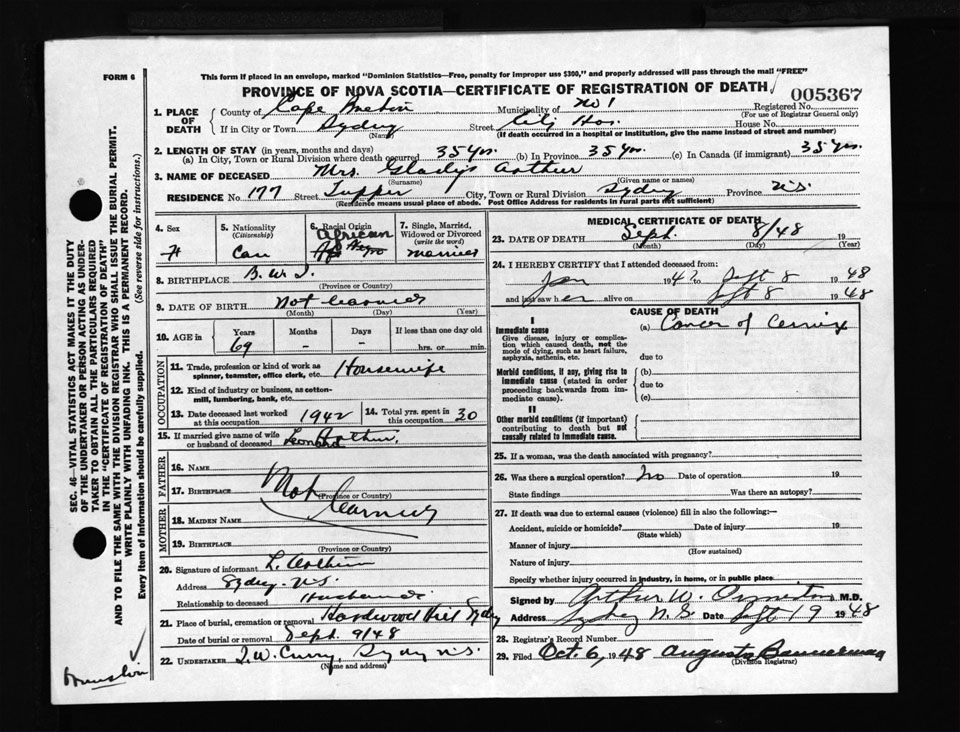 FORM 6
This form if placed in an envelope, marked "Dominion Statistics—Free, penalty for improper use $300," and properly addressed will pass through the mail "FREE"
PROVINCE OF NOVA SCOTIA—CERTIFICATE OF REGISTRATION OF DEATH
005367
Registered No.
(For use of Registrar General only)
1. PLACE OF DEATH
County of Cape Breton Municipality of No 1
If in City or Town Sydney Street City Hos. House No.
(Name) (If death occurred in a hospital or institution, give the name instead of street and number)
2. LENGTH OF STAY (in years, months and days)
(a) In City, Town or Rural Division where death occurred 35 yrs. (b) In Province 35 yrs. (c) In Canada (if immigrant) 35 yrs.
3. NAME OF DECEASED Mrs. Gladys Arthur
(Surname) (Given name or names)
RESIDENCE No. 177 Street Tupper City, Town or Rural Division Sydney Province N.S.
(Residence means usual place of abode. Post Office Address for residents in rural parts not sufficient)
4. Sex
F
5. Nationality
(Citizenship)
Can
6. Racial Origin
African
Negro
7. Single, Married, Widowed or Divorced
(write the word)
Married
8. BIRTHPLACE B.W.I.
(Province or Country)
9. DATE OF BIRTH Not learned
(Month) (Day) (Year)
10. AGE in Years Months Days If less than one day old
69 - - hrs. or min.
OCCUPATION
11. Trade, profession or kind of work as spinner, teamster, office clerk, etc. Housewife
12. Kind of industry or business, as cotton-mill, lumbering, bank, etc.
13. Date deceased last worked at this occupation 1942
14. Total yrs. spent in this occupation 30
15. If married give name of wife or husband of deceased Arthur.
FATHER
16. NAME
17. BIRTHPLACE
(Province or Country)
Not learned
MOTHER
18. MAIDEN NAME
19. BIRTHPLACE
(Province or Country)
20. Signature of informant L. Arthur
Address Sydney N.S.
Relationship to deceased Husband
21. Place of burial, cremation or removal Hardwood Hill Sydney
Date of burial or removal Sept. 9/48
22. UNDERTAKER T.W. Curry, Sydney N.S.
(Name and address)
MEDICAL CERTIFICATE OF DEATH
23. DATE OF DEATH Sept. 8/48 19
(Month) (Day) (Year)
24. I HEREBY CERTIFY that I attended deceased from:
Jan 1947 to Sept 8 1948
and last saw her alive on Sept 8 1948
CAUSE OF DEATH
I
Immediate cause
Give disease, injury or complication which caused death, not the mode of dying, such as heart failure, asphyxia, asthenia, etc.
(a) Cancer of Cervix
due to
Morbid conditions, if any, giving rise to immediate cause (stated in order proceeding backwards from immediate cause).
(b)
due to
(c)
II
Other morbid conditions (if important) contributing to death but not causally related to immediate cause.
25. If a woman, was the death associated with pregnancy?
26. Was there a surgical operation? No Date of operation 19
State findings Was there an autopsy?
27. If death was due to external causes (violence) fill in also the following:—
Accident, suicide or homicide? Date of injury 19
(State which)
Manner of injury
(How sustained)
Nature of injury
Specify whether injury occurred in industry, in home, or in public place
Signed by Arthur W. Ormiston M.D.
Address Sydney N.S. Date Sept 19 1948
28. Registrar's Record Number
29. Filed Oct. 6, 1948 Augusta Bannerman
(Division Registrar)
SEC. 46—VITAL STATISTICS ACT MAKES IT THE DUTY
OF THE UNDERTAKER OR PERSON ACTING AS UNDER-
TAKER TO OBTAIN ALL THE PARTICULARS REQUIRED
IN THE "CERTIFICATE OF REGISTRATION OF DEATH"
AND TO FILE THE SAME WITH THE DIVISION REGISTRAR WHO SHALL ISSUE THE BURIAL PERMIT.
WRITE PLAINLY WITH UNFADING INK. THIS IS A PERMANENT RECORD.
Every item of information should be carefully supplied. (See reverse side for instructions.)